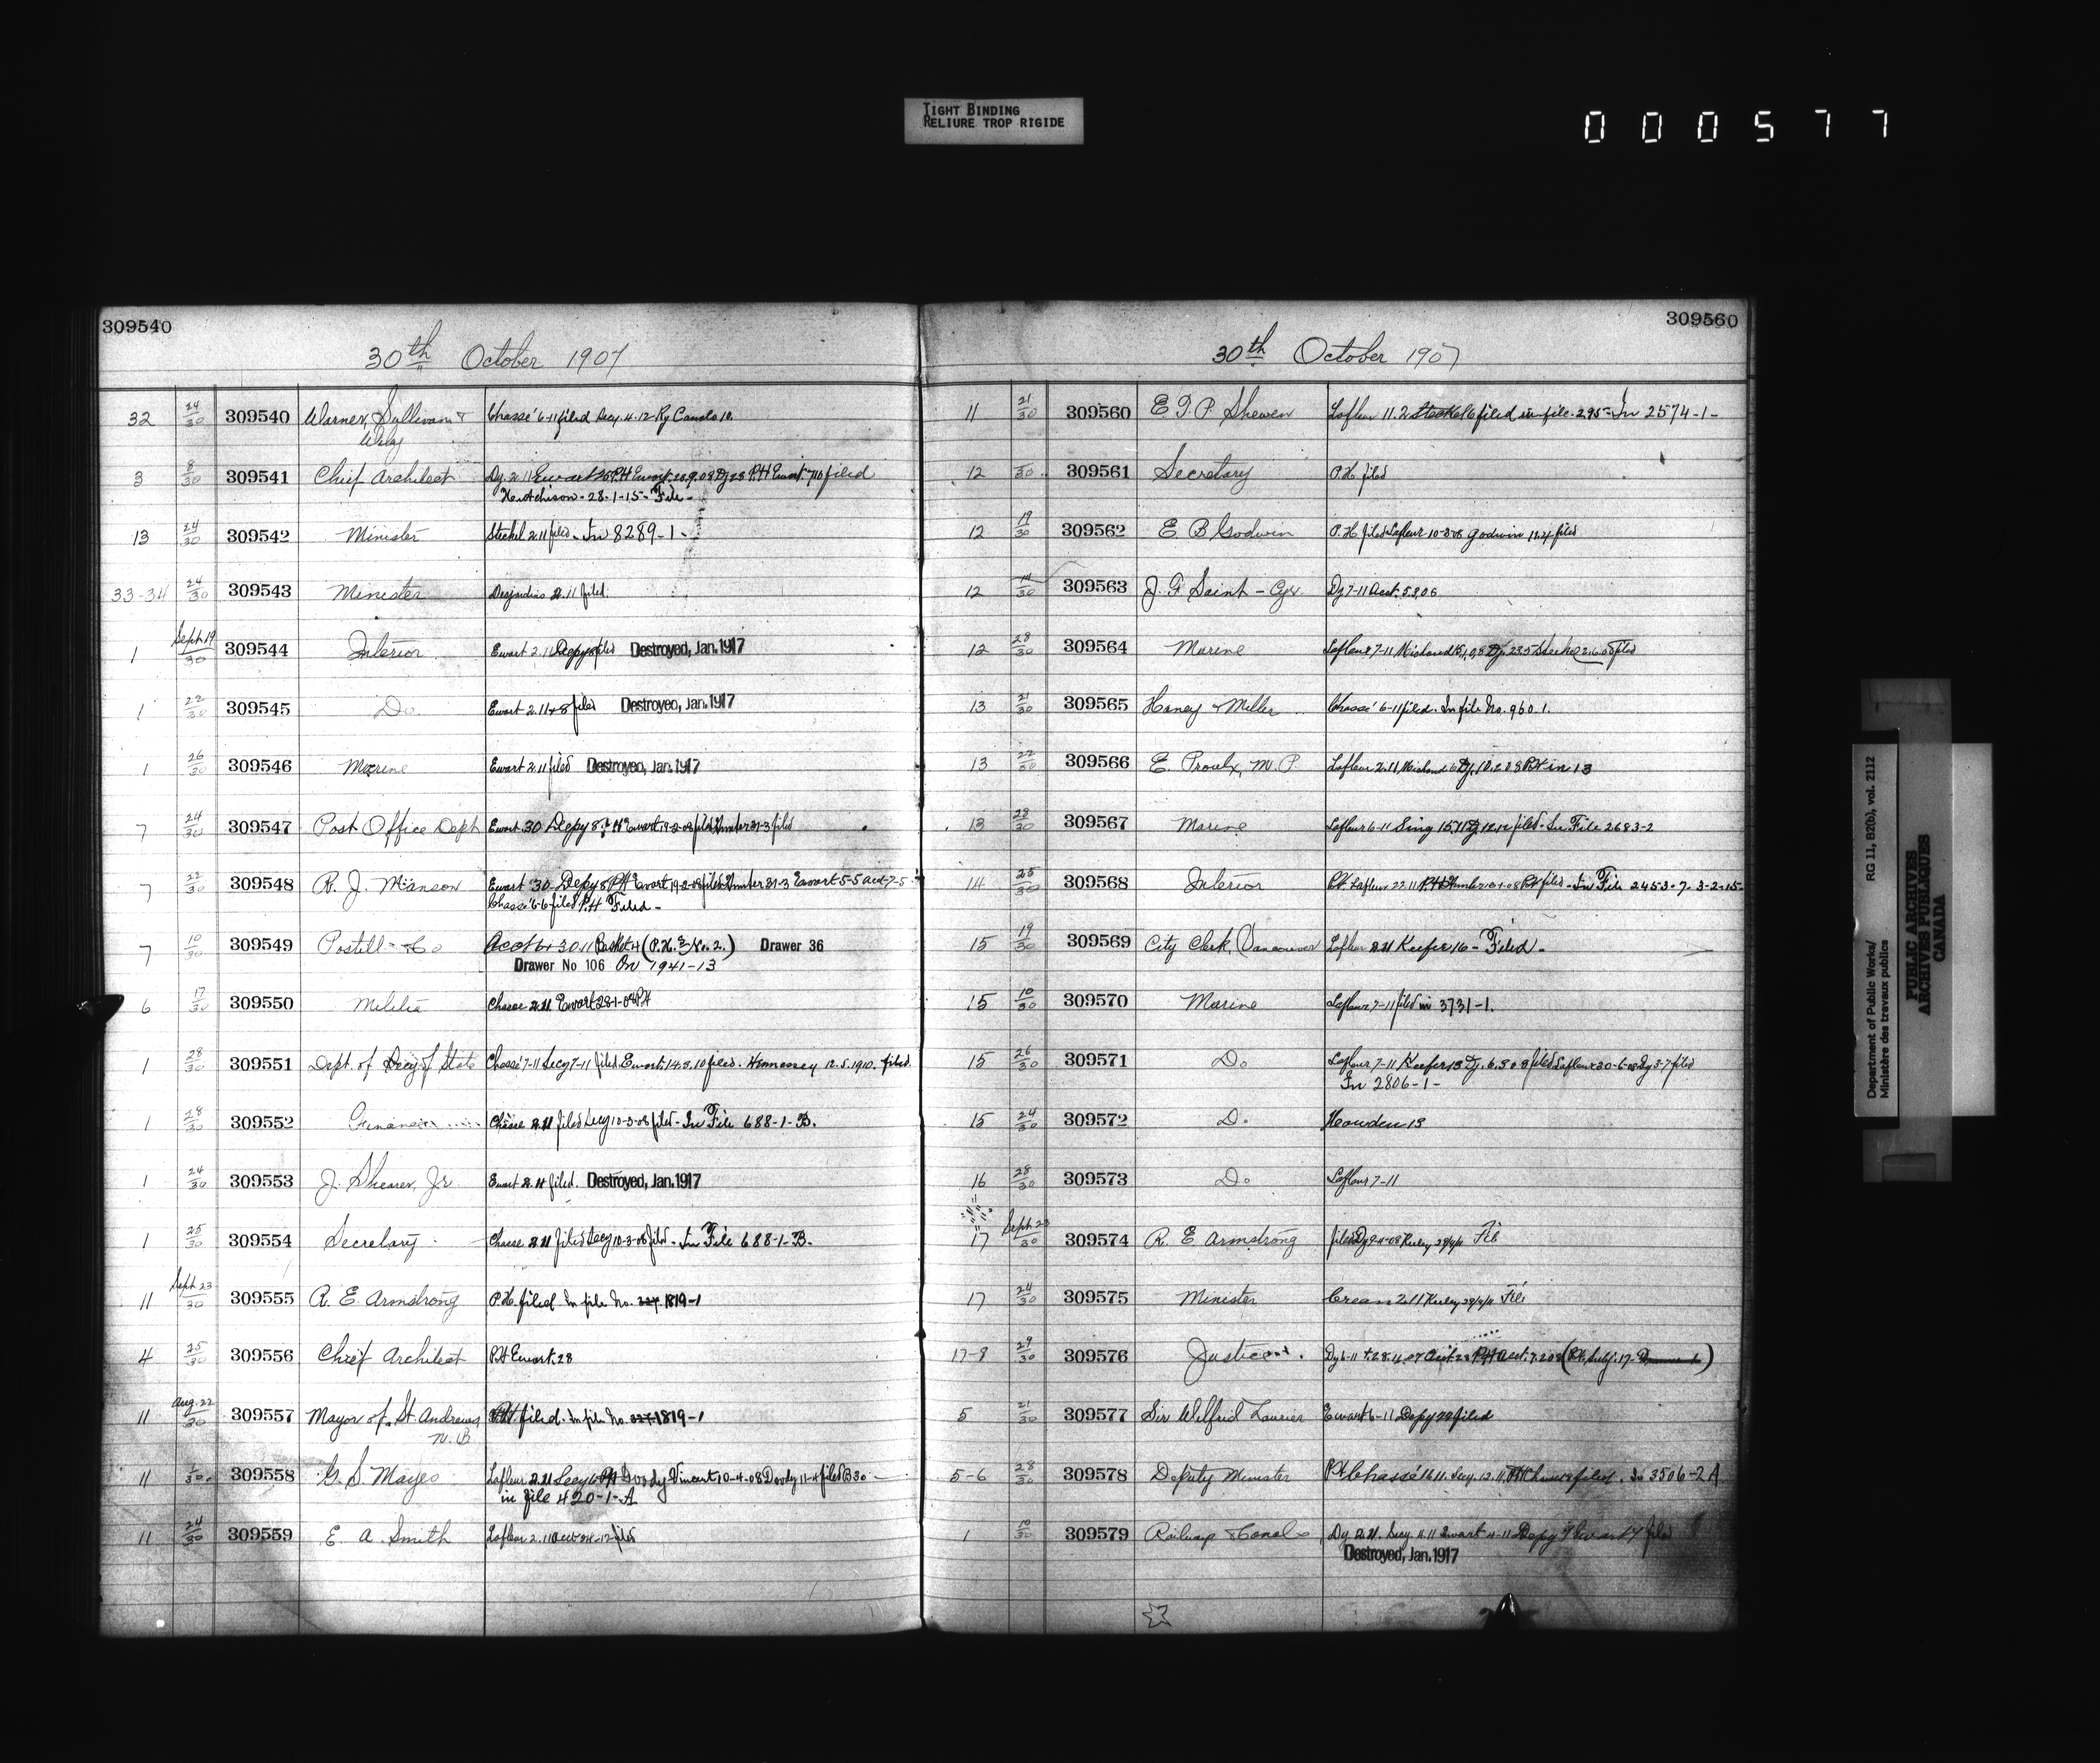 TIGHT BINDING
RELIURE TROP RIGIDE
000577
309540
30th October 1907
32 24/30 309540 Warner, Sullivan & Chassé 6-11 filed Secy. 11-12 Ry Canals 10.
3 8/30 309541 Chief Architect Dy. 2.11 Ewart P.H. Ewart 28.9.08 Dy 28 P.H. Ewart 7/10 filed
Hutchison - 28-1-15 - File -
13 24/30 309542 Minister Steckel 2.11 filed - In 8289-1 -
33-34 24/30 309543 Minister Desjardins 2.11 filed.
1 Sept 19/30 309544 Interior Ewart 2.11 Depy filed Destroyed, Jan. 1917
1 22/30 309545 Do Ewart 2.11 & 8 filed Destroyed, Jan. 1917
1 26/30 309546 Marine Ewart 2.11 filed Destroyed, Jan. 1917
7 24/30 309547 Post Office Dept Ewart 30 Depy 8 P.H. Ewart 19-2-08 filed Hunter 31-3 filed
7 22/30 309548 R. J. Manson Ewart 30 Depy 8 P.H. Ewart 19-2-08 filed Hunter 31-3 Ewart 5-5 acct-7-5
Chassé 6-6 filed P.H. Filed -
7 10/30 309549 Postill & Co Acct 30.11 Basket 4 (P.H. No. 2.) Drawer 36
Drawer No 106 On 1941-13
6 17/30 309550 Militia Chasse 2.11 Ewart 28-1-08 P.H
1 28/30 309551 Dept. of Secy of State Chassé 7-11 Secy 7-11 filed Ewart 14.3.10 filed. Hennessey 12.5.1910. filed.
1 28/30 309552 Finance Chasse 2.11 filed Secy 10-3-08 filed - In File 688-1-B.
1 24/30 309553 J. Shearer, Jr Ewart 2.11 filed. Destroyed, Jan. 1917
1 25/30 309554 Secretary Chasse 2.11 filed Secy 10-3-08 filed - In File 688-1-B.
11 Sept 23/30 309555 R. E. Armstrong P.H. filed. In file No. 227. 1819-1
4 25/30 309556 Chief Architect P.H Ewart. 28
11 Aug. 22/30 309557 Mayor of St. Andrews, P.H. filed. In file No. 227 1819-1
N. B
11 1/30 309558 G. S. Mayes Lafleur 2.11 Secy P.H Doody Vincent 10-4-08 Doody 11-4 filed B30 -
in file 420-1-A
11 24/30 309559 E. A. Smith Lafleur 2.11 filed
309560
30th October 1907
11 21/30 309560 E. T. P. Shewen Lafleur 11.2 Steckel 6 filed in file 295 - In 2574-1-
12 30 309561 Secretary P.H. filed
12 19/30 309562 E B Godwin P.H filed Lafleur 10-3-08 Godwin 11.4 filed
12 14/30 309563 J. F. Saint-Cyr. Dy 7-11 Acct. 5.3.06
12 28/30 309564 Marine Lafleur 7-11 Michaud Dy. 23.5 Steckel 2.6.08 Filed
13 21/30 309565 Haney & Miller Chassé 6-11 filed. In file No. 960.1.
13 22/30 309566 E. Proulx, M. P Lafleur 2.11 Michaud 6 Dy. 10.2.08 P.H in 13
13 28/30 309567 Marine Lafleur 6-11 Sing 15.11 Dy 12.12 filed - In File 2683-2
14 25/30 309568 Interior P.H. Lafleur 22.11 P.H. filed - In File 2453-7. 3-2-15-
15 19/30 309569 City Clerk, (Vancouver Lafleur 2.11 Keefer 16 - Filed -
15 10/30 309570 Marine Lafleur 7-11 filed in 3731-1.
15 26/30 309571 Do Lafleur 7-11 Keefer 13 Dy. 6.3.08 filed Lafleur 30-6-08 Dy 3-7 filed
In 2806-1-
15 24/30 309572 Do Howden 13
16 28/30 309573 Do Lafleur 7-11
17 Sept 23/30 309574 R. E Armstrong filed Dy 2-4-08 29/4/11 File
17 24/30 309575 Minister Crean 2.11 29/4/11 File
17-8 29/30 309576 Justice Dy 6-11 P.H acct. 7.2.08 (P.H. Subj. 17- )
5 21/30 309577 Sir Wilfrid Laurier Ewart 6-11 Depy 22 filed
5-6 28/30 309578 Deputy Minister P.H Chassé 16.11. Secy. 12.11. filed. In 3506-2A
1 10/30 309579 Railways & Canals Dy. 2.11. Secy. 11.11 Ewart 11-11 Depy filed
Destroyed, Jan. 1917
Department of Public Works/ RG 11, B2(b), vol. 2112
Ministère des travaux publics
PUBLIC ARCHIVES
ARCHIVES PUBLIQUES
CANADA